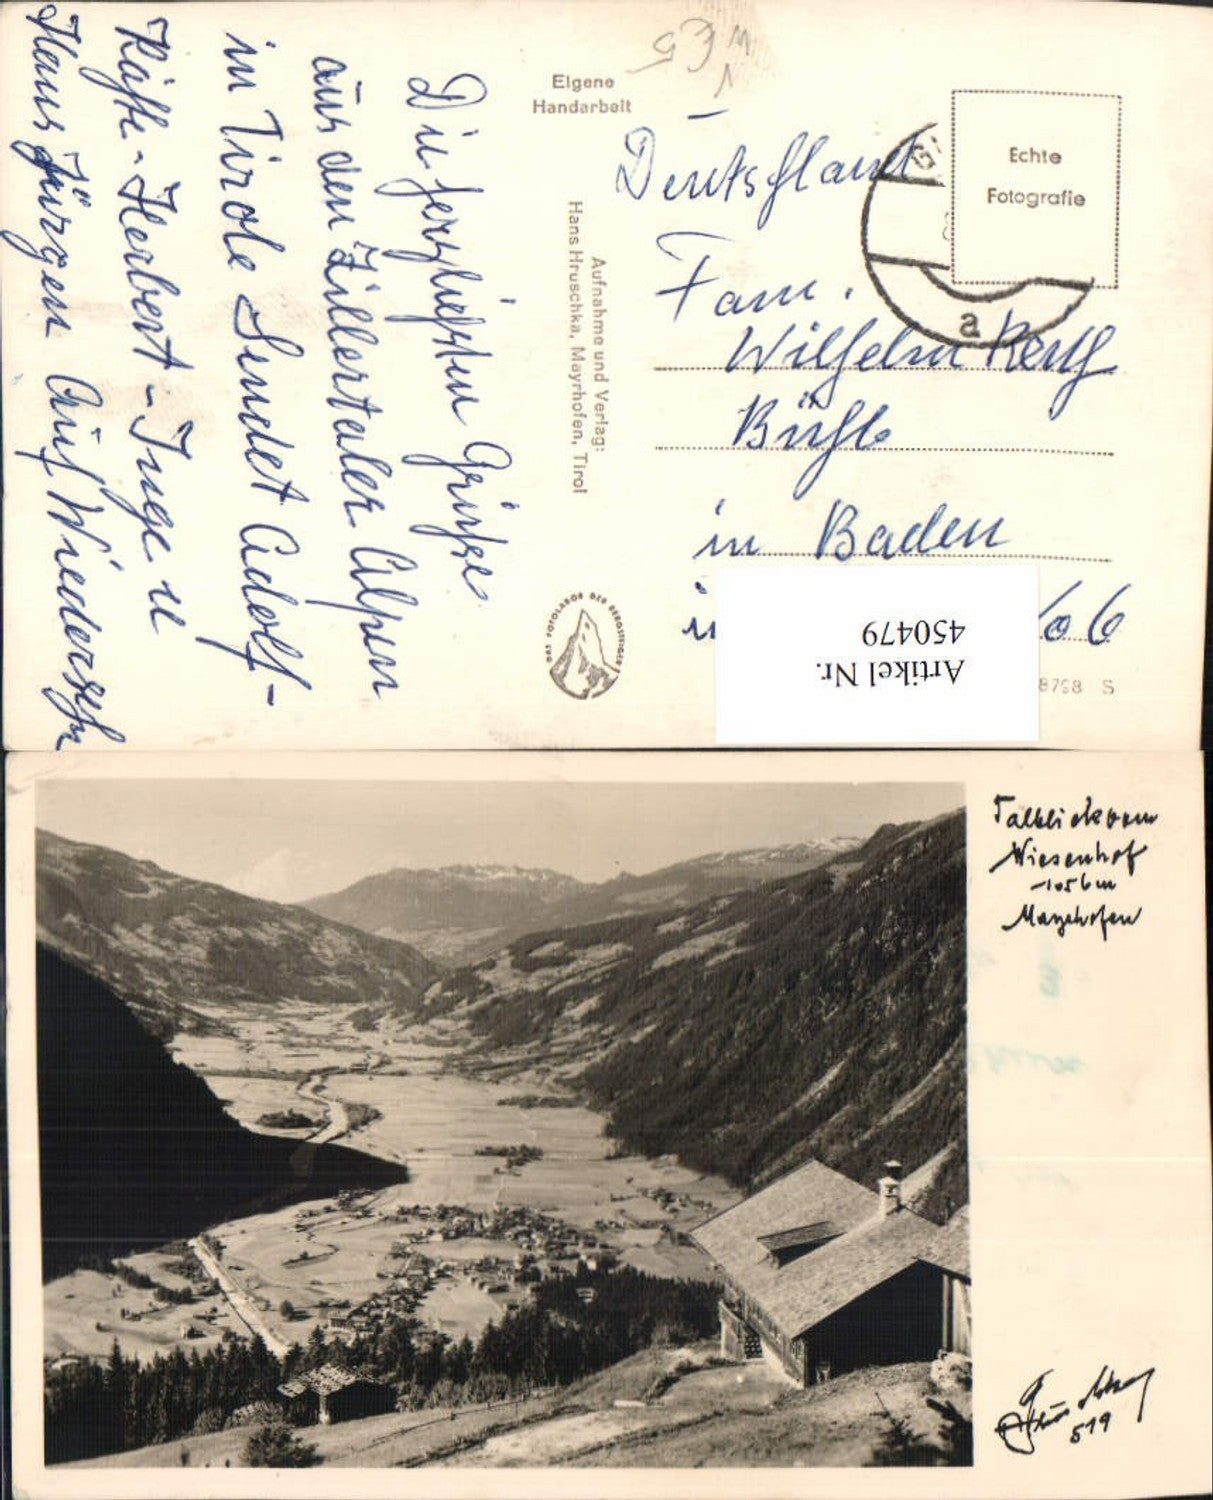 Die herzlichsten Grüße
aus den Zillertaler Alpen
in Tirole Sendet Adolf-
Käthe - Herbert - Inge u
Hans Jürgen Auf Wiedersehn
Eigene
Handarbeit
Aufnahme und Verlag:
Hans Hruschka, Mayrhofen, Tirol
DAS FOTOLABOR DER BERGSTEIGER
Echte
Fotografie
a
Deutschland
Fam.
Wilhelm
Bühl
in Baden
Artikel Nr.
450479
8798 S
Talblick vom
Wiesenhof
1056m
Mayrhofen
519